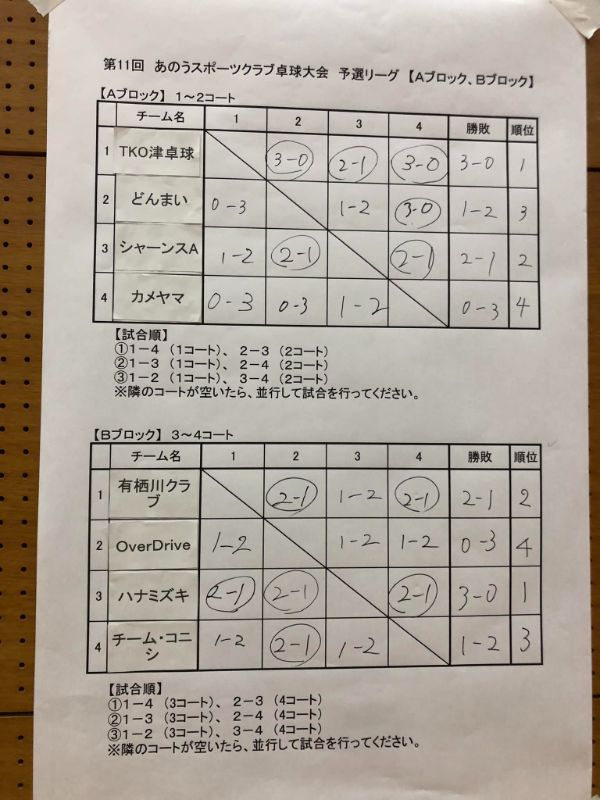 第11回 あのうスポーツクラブ卓球大会 予選リーグ 【Aブロック、Bブロック】
【Aブロック】 1～2コート
チーム名 1 2 3 4 勝敗 順位
1 TKO津卓球 3-0 2-1 3-0 3-0 1
2 どんまい 0-3 1-2 3-0 1-2 3
3 シャーンスA 1-2 2-1 2-1 2-1 2
4 カメヤマ 0-3 0-3 1-2 0-3 4
【試合順】
①1－4 (1コート)、 2－3 (2コート)
②1－3 (1コート)、 2－4 (2コート)
③1－2 (1コート)、 3－4 (2コート)
※隣のコートが空いたら、並行して試合を行ってください。
【Bブロック】 3～4コート
チーム名 1 2 3 4 勝敗 順位
1 有栖川クラ
ブ 2-1 1-2 2-1 2-1 2
2 OverDrive 1-2 1-2 1-2 0-3 4
3 ハナミズキ 2-1 2-1 2-1 3-0 1
4 チーム・コニ
シ 1-2 2-1 1-2 1-2 3
【試合順】
①1－4 (3コート)、 2－3 (4コート)
②1－3 (3コート)、 2－4 (4コート)
③1－2 (3コート)、 3－4 (4コート)
※隣のコートが空いたら、並行して試合を行ってください。